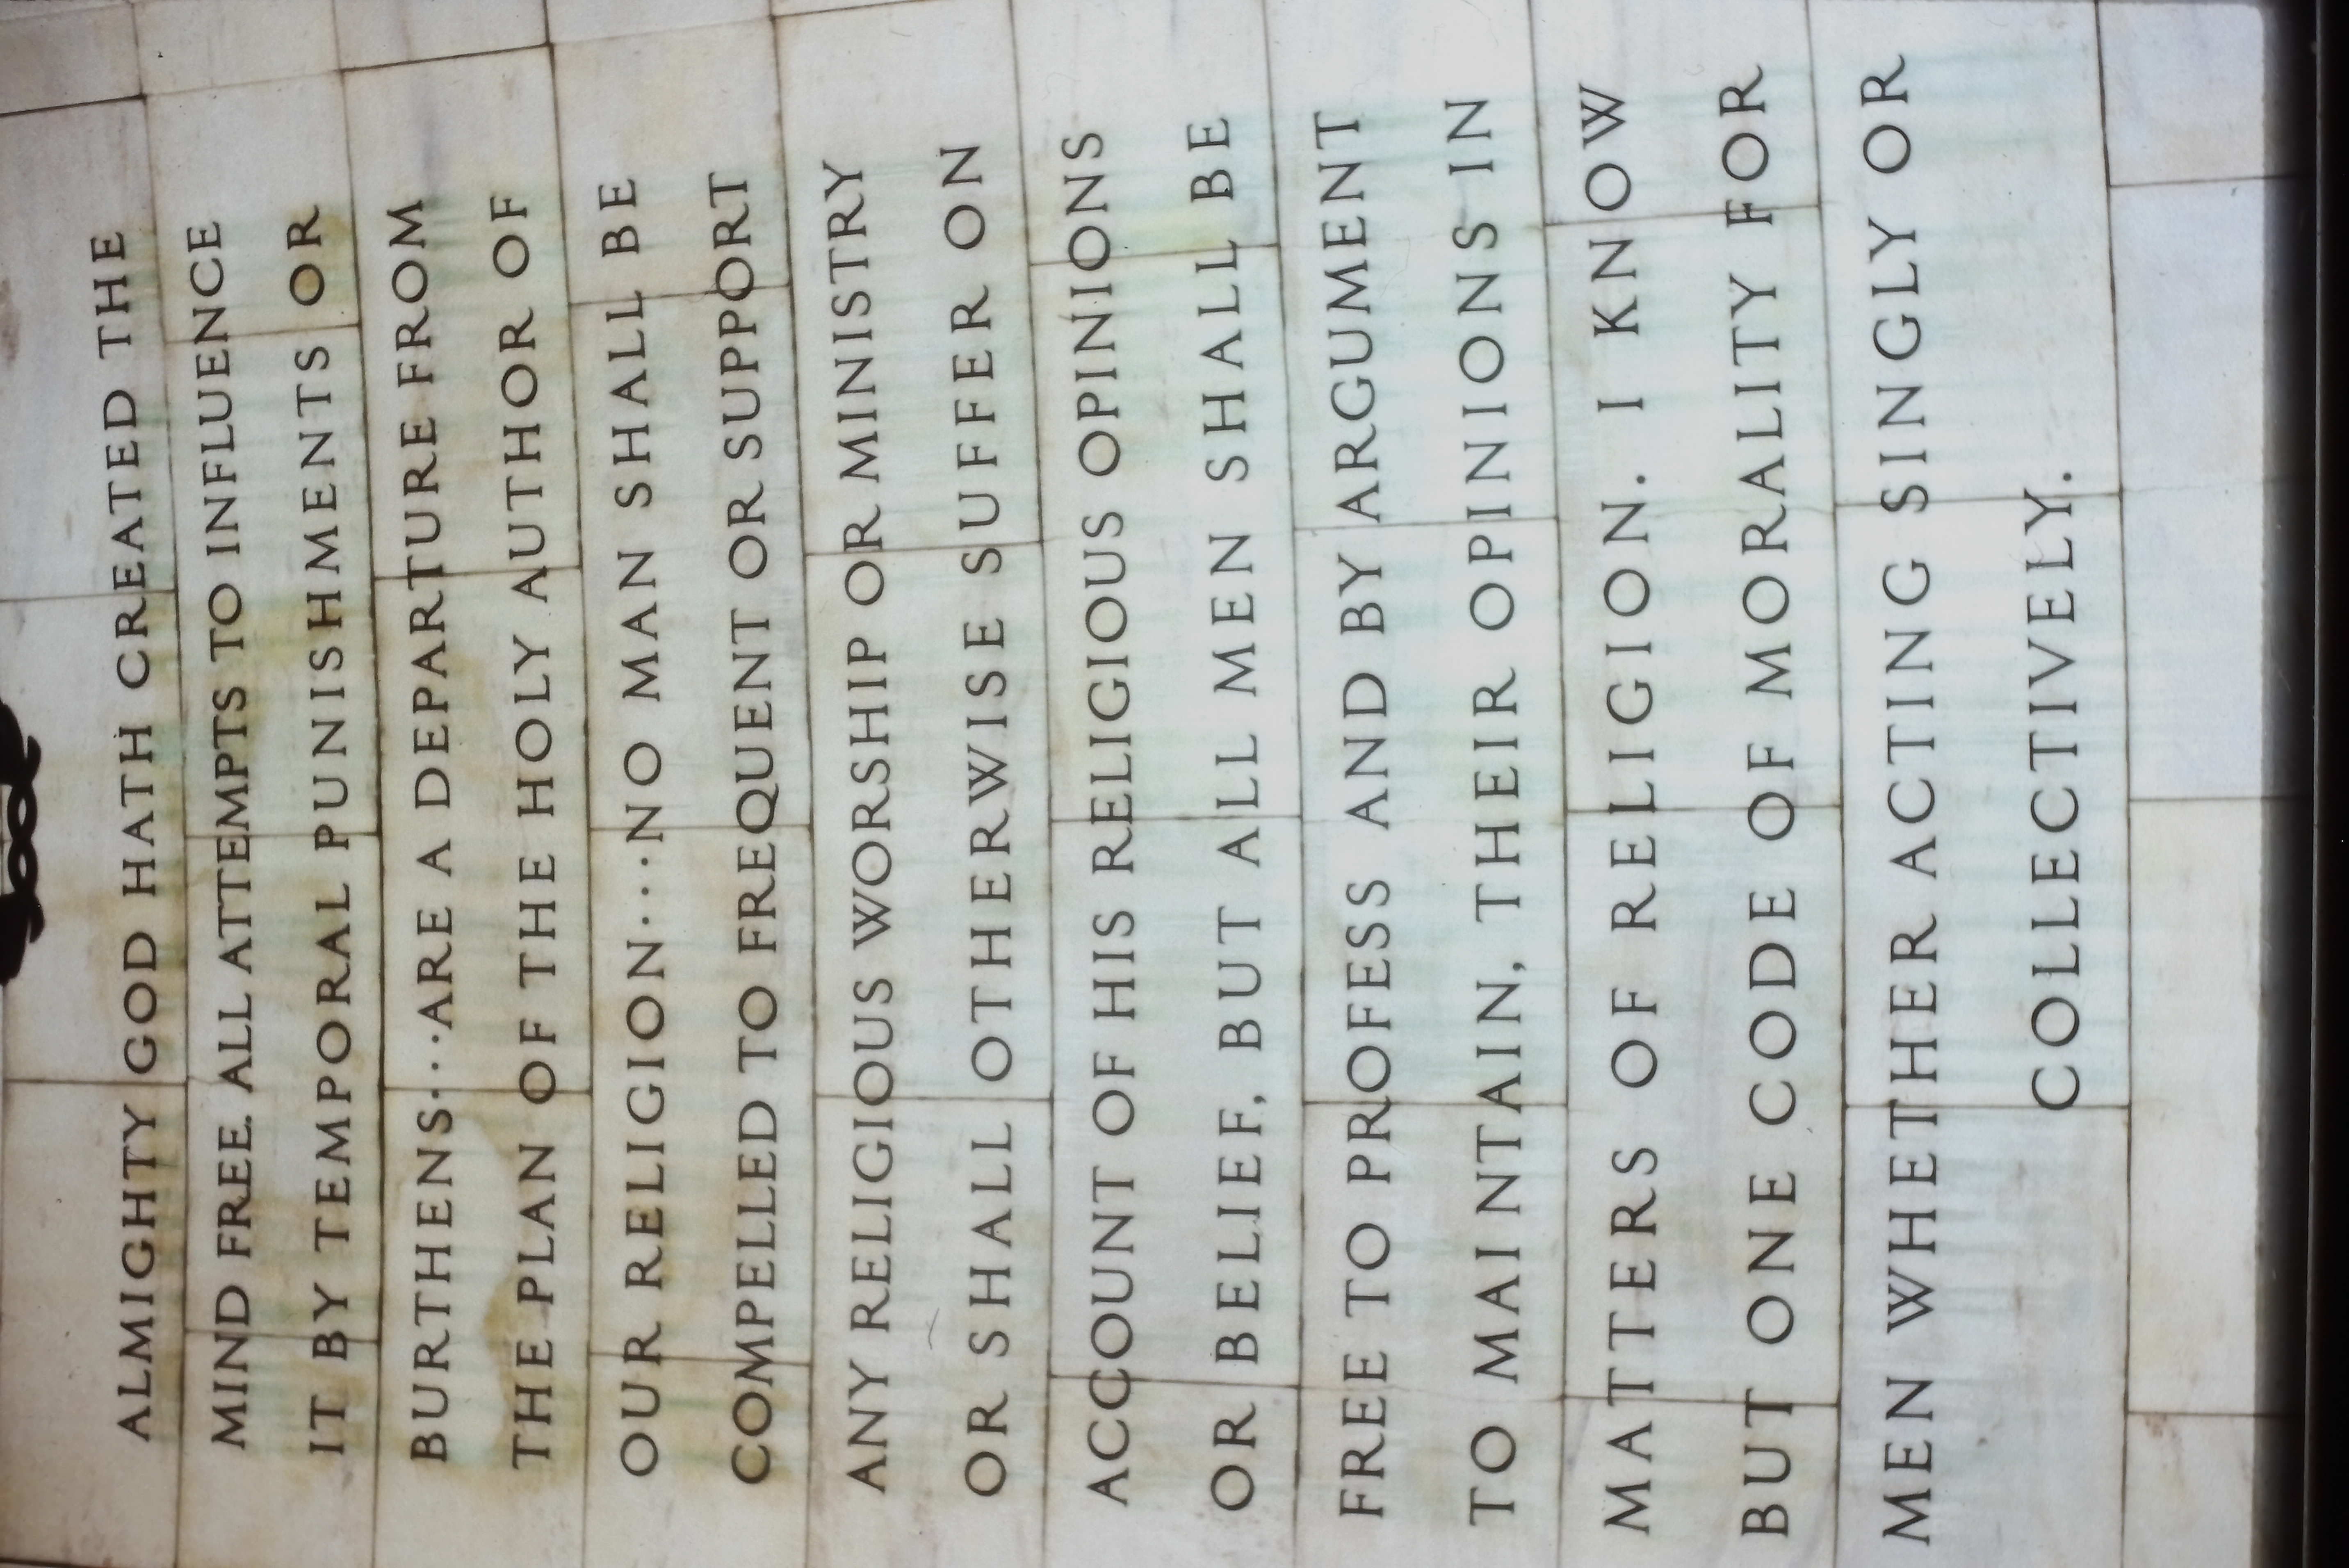 ALMIGHTY GOD HATH CREATED THE
MIND FREE. ALL ATTEMPTS TO INFLUENCE
IT BY TEMPORAL PUNISHMENTS OR
BURTHENS...ARE A DEPARTURE FROM
THE PLAN OF THE HOLY AUTHOR OF
OUR RELIGION...NO MAN SHALL BE
COMPELLED TO FREQUENT OR SUPPORT
ANY RELIGIOUS WORSHIP OR MINISTRY
OR SHALL OTHERWISE SUFFER ON
ACCOUNT OF HIS RELIGIOUS OPINIONS
OR BELIEF, BUT ALL MEN SHALL BE
FREE TO PROFESS AND BY ARGUMENT
TO MAINTAIN, THEIR OPINIONS IN
MATTERS OF RELIGION. I KNOW
BUT ONE CODE OF MORALITY FOR
MEN WHETHER ACTING SINGLY OR
COLLECTIVELY.